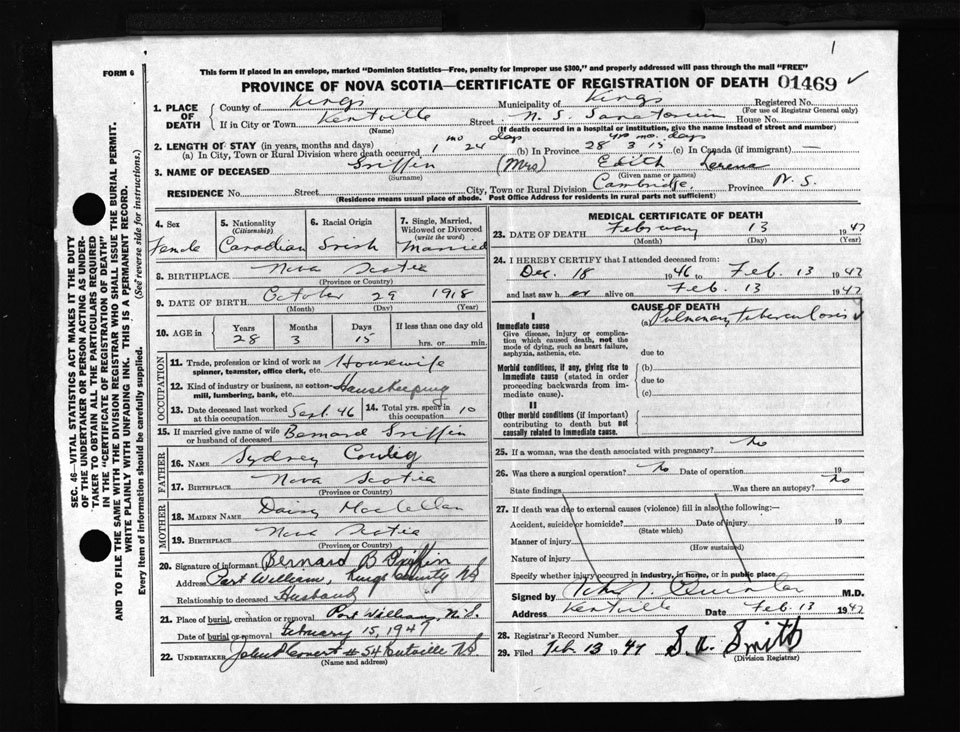 1
This form if placed in an envelope, marked "Dominion Statistics—Free, penalty for improper use $300," and properly addressed will pass through the mail "FREE"
FORM 6
PROVINCE OF NOVA SCOTIA—CERTIFICATE OF REGISTRATION OF DEATH 01469 ✓
1. PLACE OF DEATH County of Kings Municipality of Kings Registered No.
(For use of Registrar General only)
If in City or Town Kentville Street N. S. Sanatorium House No.
(Name) (If death occurred in a hospital or institution, give the name instead of street and number)
2. LENGTH OF STAY (in years, months and days)
(a) In City, Town or Rural Division where death occurred 1 mo 24 days (b) In Province 28 yrs 3 mo. 15 days (c) In Canada (if immigrant) —
3. NAME OF DECEASED Griffin (Mrs) Edith Lerena
(Surname) (Given name or names)
RESIDENCE No. Street City, Town or Rural Division Cambridge Province N. S.
(Residence means usual place of abode. Post Office Address for residents in rural parts not sufficient)
SEC. 46—VITAL STATISTICS ACT MAKES IT THE DUTY
OF THE UNDERTAKER OR PERSON ACTING AS UNDER-
TAKER TO OBTAIN ALL THE PARTICULARS REQUIRED
IN THE "CERTIFICATE OF REGISTRATION OF DEATH"
AND TO FILE THE SAME WITH THE DIVISION REGISTRAR WHO SHALL ISSUE THE BURIAL PERMIT.
WRITE PLAINLY WITH UNFADING INK. THIS IS A PERMANENT RECORD.
Every item of information should be carefully supplied. (See reverse side for instructions.)
4. Sex 5. Nationality (Citizenship) 6. Racial Origin 7. Single, Married, Widowed or Divorced (write the word)
Female Canadian Irish Married
8. BIRTHPLACE Nova Scotia
(Province or Country)
9. DATE OF BIRTH October 29 1918
(Month) (Day) (Year)
10. AGE in Years Months Days If less than one day old
28 3 15 hrs. or min.
OCCUPATION
11. Trade, profession or kind of work as spinner, teamster, office clerk, etc. Housewife
12. Kind of industry or business, as cotton mill, lumbering, bank, etc. Housekeeping
13. Date deceased last worked at this occupation Sept. 46 14. Total yrs. spent in this occupation 10
15. If married give name of wife or husband of deceased Bernard Griffin
FATHER
16. NAME Sydney
17. BIRTHPLACE Nova Scotia
(Province or Country)
MOTHER
18. MAIDEN NAME Daisy MacLellan
19. BIRTHPLACE Nova Scotia
(Province or Country)
20. Signature of informant Bernard B Griffin
Address Port William, Kings County NS
Relationship to deceased Husband
21. Place of burial, cremation or removal Port William, N.S.
Date of burial or removal February 15, 1947
22. UNDERTAKER #54 Kentville NS.
(Name and address)
MEDICAL CERTIFICATE OF DEATH
23. DATE OF DEATH February 13 1947
(Month) (Day) (Year)
24. I HEREBY CERTIFY that I attended deceased from:
Dec. 18 1946 to Feb. 13 1947
and last saw her alive on Feb. 13 1947
CAUSE OF DEATH
I
Immediate cause (a) Pulmonary tuberculosis ✓
Give disease, injury or complication which caused death, not the mode of dying, such as heart failure, asphyxia, asthenia, etc. due to
Morbid conditions, if any, giving rise to immediate cause (stated in order proceeding backwards from immediate cause). (b)
due to
(c)
II
Other morbid conditions (if important) contributing to death but not causally related to immediate cause.
25. If a woman, was the death associated with pregnancy? No
26. Was there a surgical operation? No Date of operation 19
State findings Was there an autopsy? No
27. If death was due to external causes (violence) fill in also the following:—
Accident, suicide or homicide? Date of injury 19
(State which)
Manner of injury
(How sustained)
Nature of injury
Specify whether injury occurred in industry, in home, or in public place
Signed by M.D.
Address Kentville Date Feb. 13 1947
28. Registrar's Record Number
29. Filed Feb 13 1947 S. A. Smith
(Division Registrar)